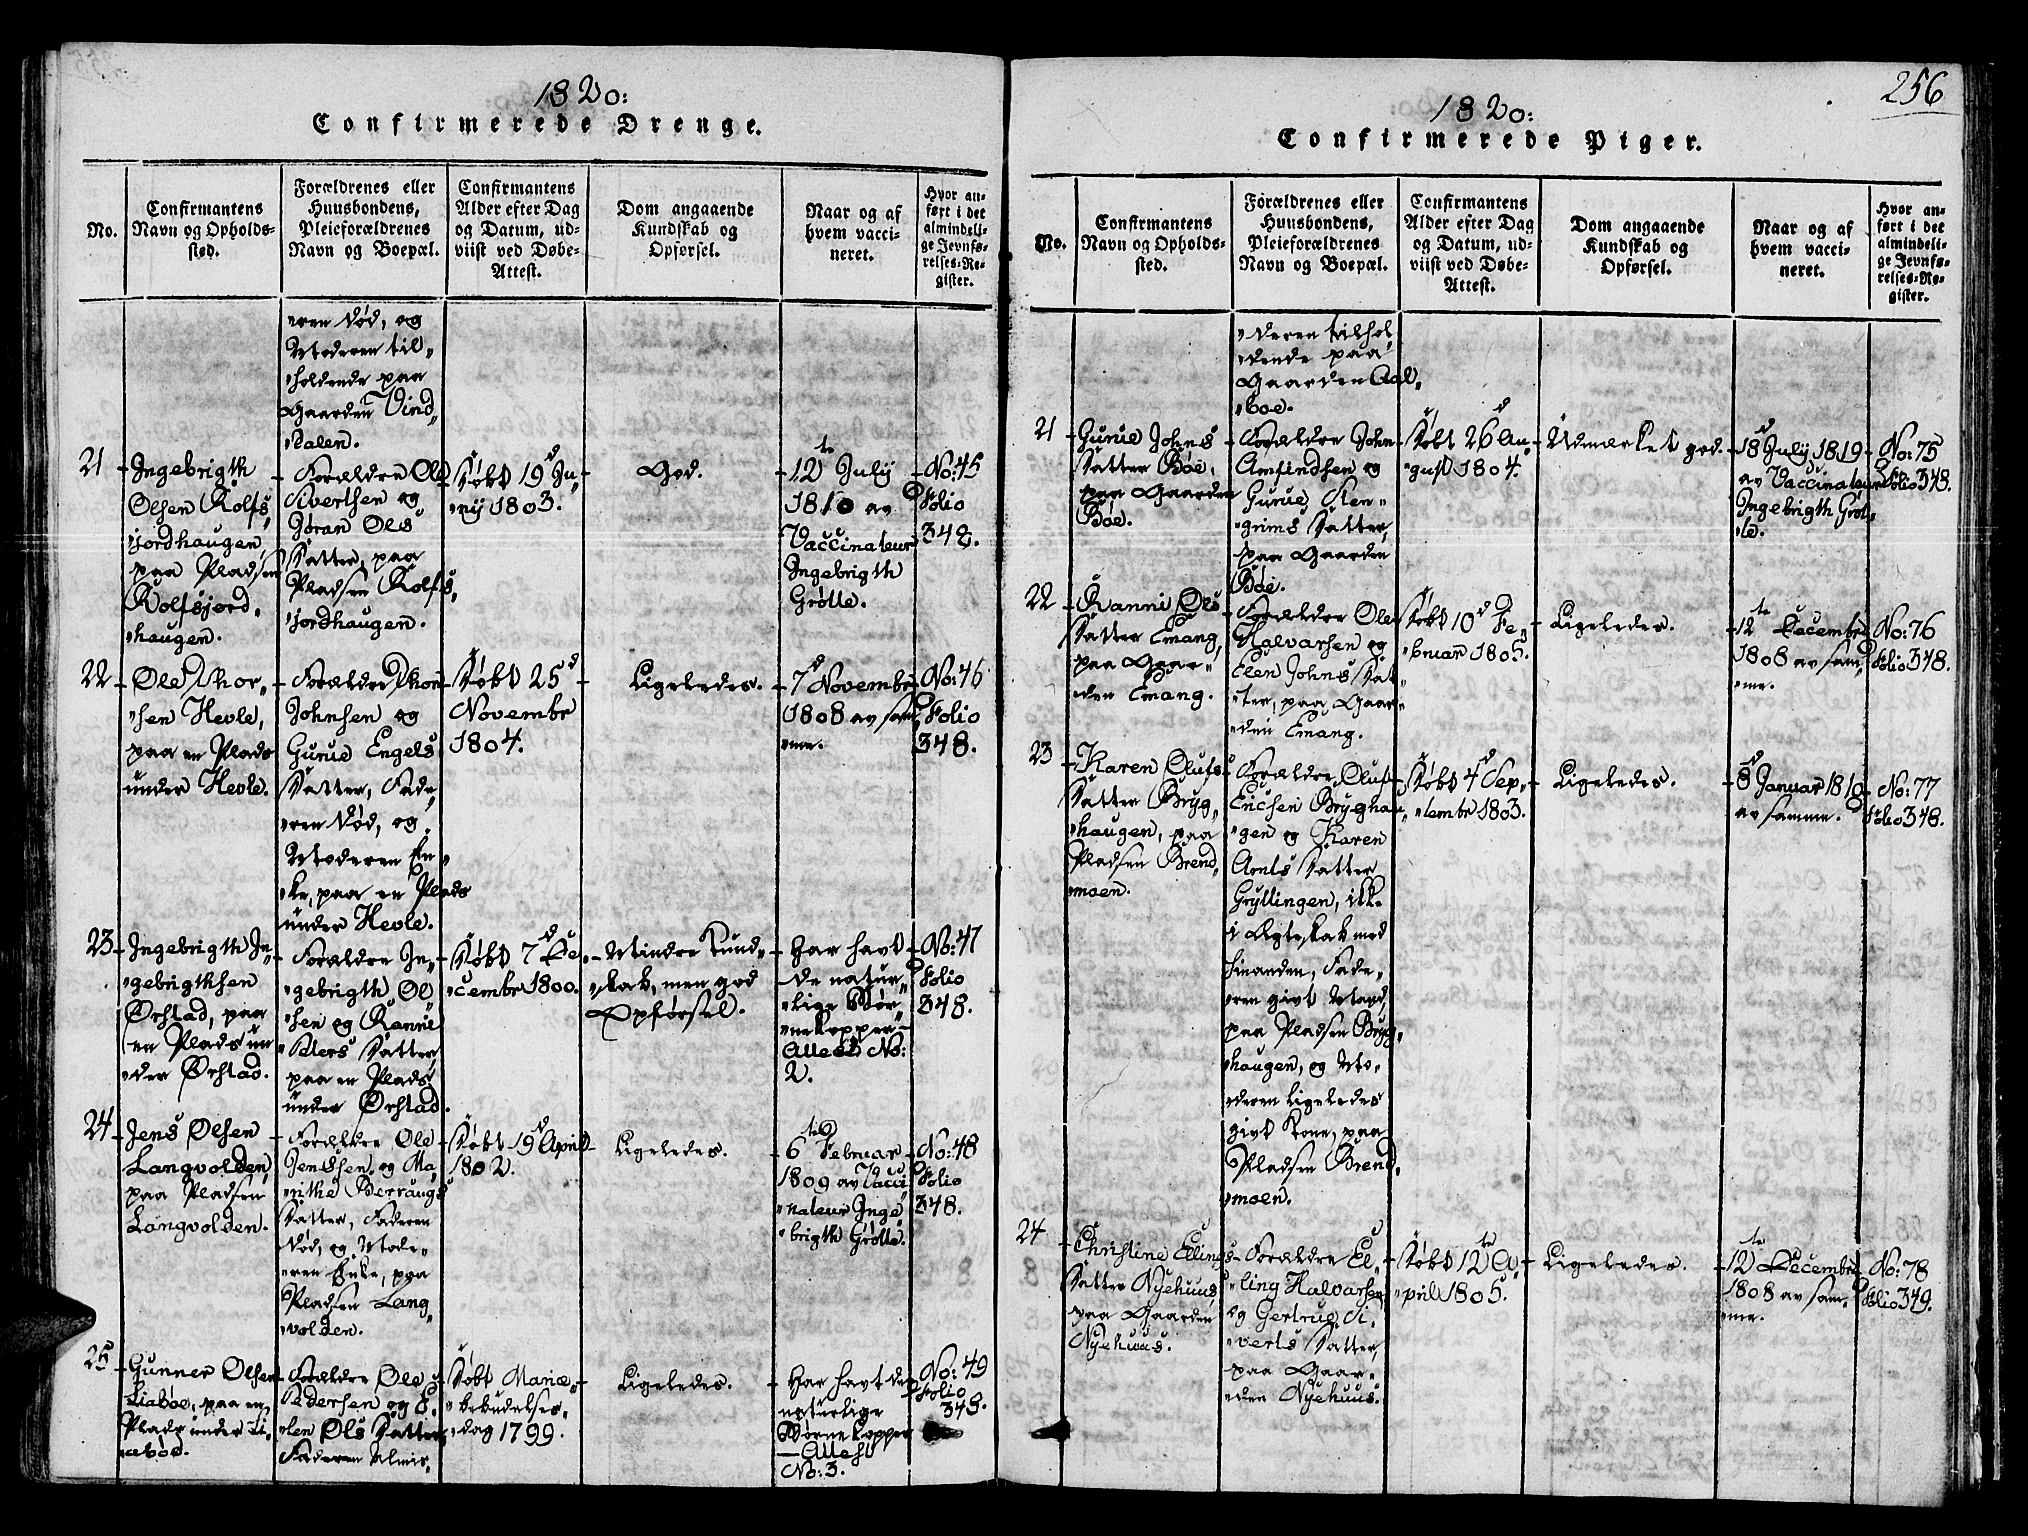 1820:
Confirmerede Drenge.
No.
Confirmantens
Navn og Opholds-
sted.
Forældrenes eller
Huusbondens,
Pleieforældrenes
Navn og Boepæl.
Confirmantens
Alder efter Dag
og Datum, ud-
viist ved Døbe-
Attest.
Dom angaaende
Kundskab og
Opførsel.
Naar og af
hvem vacci-
neret.
Hvor an-
ført i det
almindeli-
ge Jevnfø-
relses-Re-
gister.
"ren død, og
Moderen til-
"holdende paa
Gaarden Vind-
"dalen.
21
Ingebrigth
Olsen Rolfs-
"jordhaugen,
paa Pladsen
Rolfsjord-
"haugen.
Forældre Ole
Sivertsen og
Jøran Ols
Datter, paa
Pladsen Rolfs-
"jordhaugen.
Døbt 19d Ju-
"nij 1803.
God.
12te Julij
1810 av
Vaccinateur
Ingebrigth
Grøtte.
No: 45
Folio
348.
22
Ole Thor-
"sen Hevle,
paa en Plads
under Hevle.
Forældre Thor
Johnsen og
Gurue Engels
Datter, Fade-
"ren død, og
Moderen En-
"ke, paa en Plads
under Hevle.
Døbt 25d
Novembr
1804.
Ligeledes.
7d Novembr
1808 av sam-
"me.
No: 46
Folio
348.
23
Ingebrigth In-
"gebrigthsen
Ørstad, paa
en Plads un-
"der Ørstad.
Forældre In-
"gebrigth Ol-
"sen og Ranni
Peders Datter
paa en Plads
under Ørstad.
Døbt 7d De-
"cembr 1800.
Mindre Kund-
"skab, men god
Opførsel.
Har havt
de natur-
"lige Bør-
"nekopper -
Attest No:
2.
No: 47
Folio
348.
24
Jens Olsen
Langvolden,
paa Pladsen
Langvolden.
Forældre Ole
Jenssen og Ma-
"rithe Berraugs
Datter, Faderen
død, og Mode-
"ren Enke, paa
Pladsen Lang-
"volden.
Døbt 19d April
1802.
Ligeledes.
6te Februar
1809 av Vacci-
"nateur Inge-
"brigth Grøtte.
No: 48
Folio
348.
25
Gunner Olsen
Liabøe, paa en
Plads under Li-
"abøe.
Forældre Ole
Pedersen og E-
"len Ols Datter,
Faderen Almis-
Døbt Mariæ
bebudelses-
"dag 1799.
Ligeledes.
Har havt de
naturlige
Børnekopper
- Attest
No: 3.
No: 49
Folio
348.
256
1820:
Confirmerede Piger.
No.
Confirmantens
Navn og Opholds-
sted.
Forældrenes eller
Huusbondens,
Pleieforældrenes
Navn og Boepæl.
Confirmantens
Alder efter Dag
og Datum, ud-
viist ved Døbe-
Attest.
Dom angaaende
Kundskab og
Opførsel.
Naar og af
hvem vacci-
neret.
Hvor an-
ført i det
almindeli-
ge Jevnfø-
relses-Re-
gister.
"deren tilhol-
"dende paa
Gaarden Aal-
"boe.
21
Gurue Johns
Datter Bøe,
paa Gaarden
Bøe.
Forældre John
Amfindsen og
Gurue Sten-
"grims Datter,
paa Gaarden
Bøe.
Døbt 26d Au-
"gust 1804.
Udmærket god.
18d Julij 1819
av Vaccinateur
Ingebrigth Grøt-
"te.
No: 75
Folio 348.
22
Ranni Ols
Datter Emang,
paa Gaar-
"den Emang.
Forældre Ole
Halvarsen og
Elen Johns Dat-
"ter, paa Gaar-
"den Emang.
Døbt 10d Fe-
"bruar 1805.
Ligeledes.
12te Decembr
1808 av sam-
"me.
No: 76
Folio 348.
23
Karen Olufs
Datter Bryg-
"haugen, paa
Pladsen Brend-
"moen.
Forældre Oluf
Ericsen Bryghau-
"gen og Karen
Arnts Datter
Gryllingen, ikke
i Ægteskab med
hinanden, Fade-
"ren givt Mand,
paa Pladsen Bryg-
"haugen, og Mo-
"deren ligeledes
givt Kone, paa
Pladsen Brend-
"moen.
Døbt 4d Sep-
"tembr 1803.
Ligeledes.
8d Januar 1810
av samme.
No: 77
Folio 348.
24
Christine Ellings
Datter Nyehuus,
paa Gaarden
Nyehuus.
Forældre El-
"ling Halvarsen
og Gertrue Si-
"verts Datter,
paa Gaar-
"den Nyehuus.
Døbt 12te A-
"pril 1805.
Ligeledes.
12te Decembr
1808 av sam-
"me.
No: 78
Folio 349.